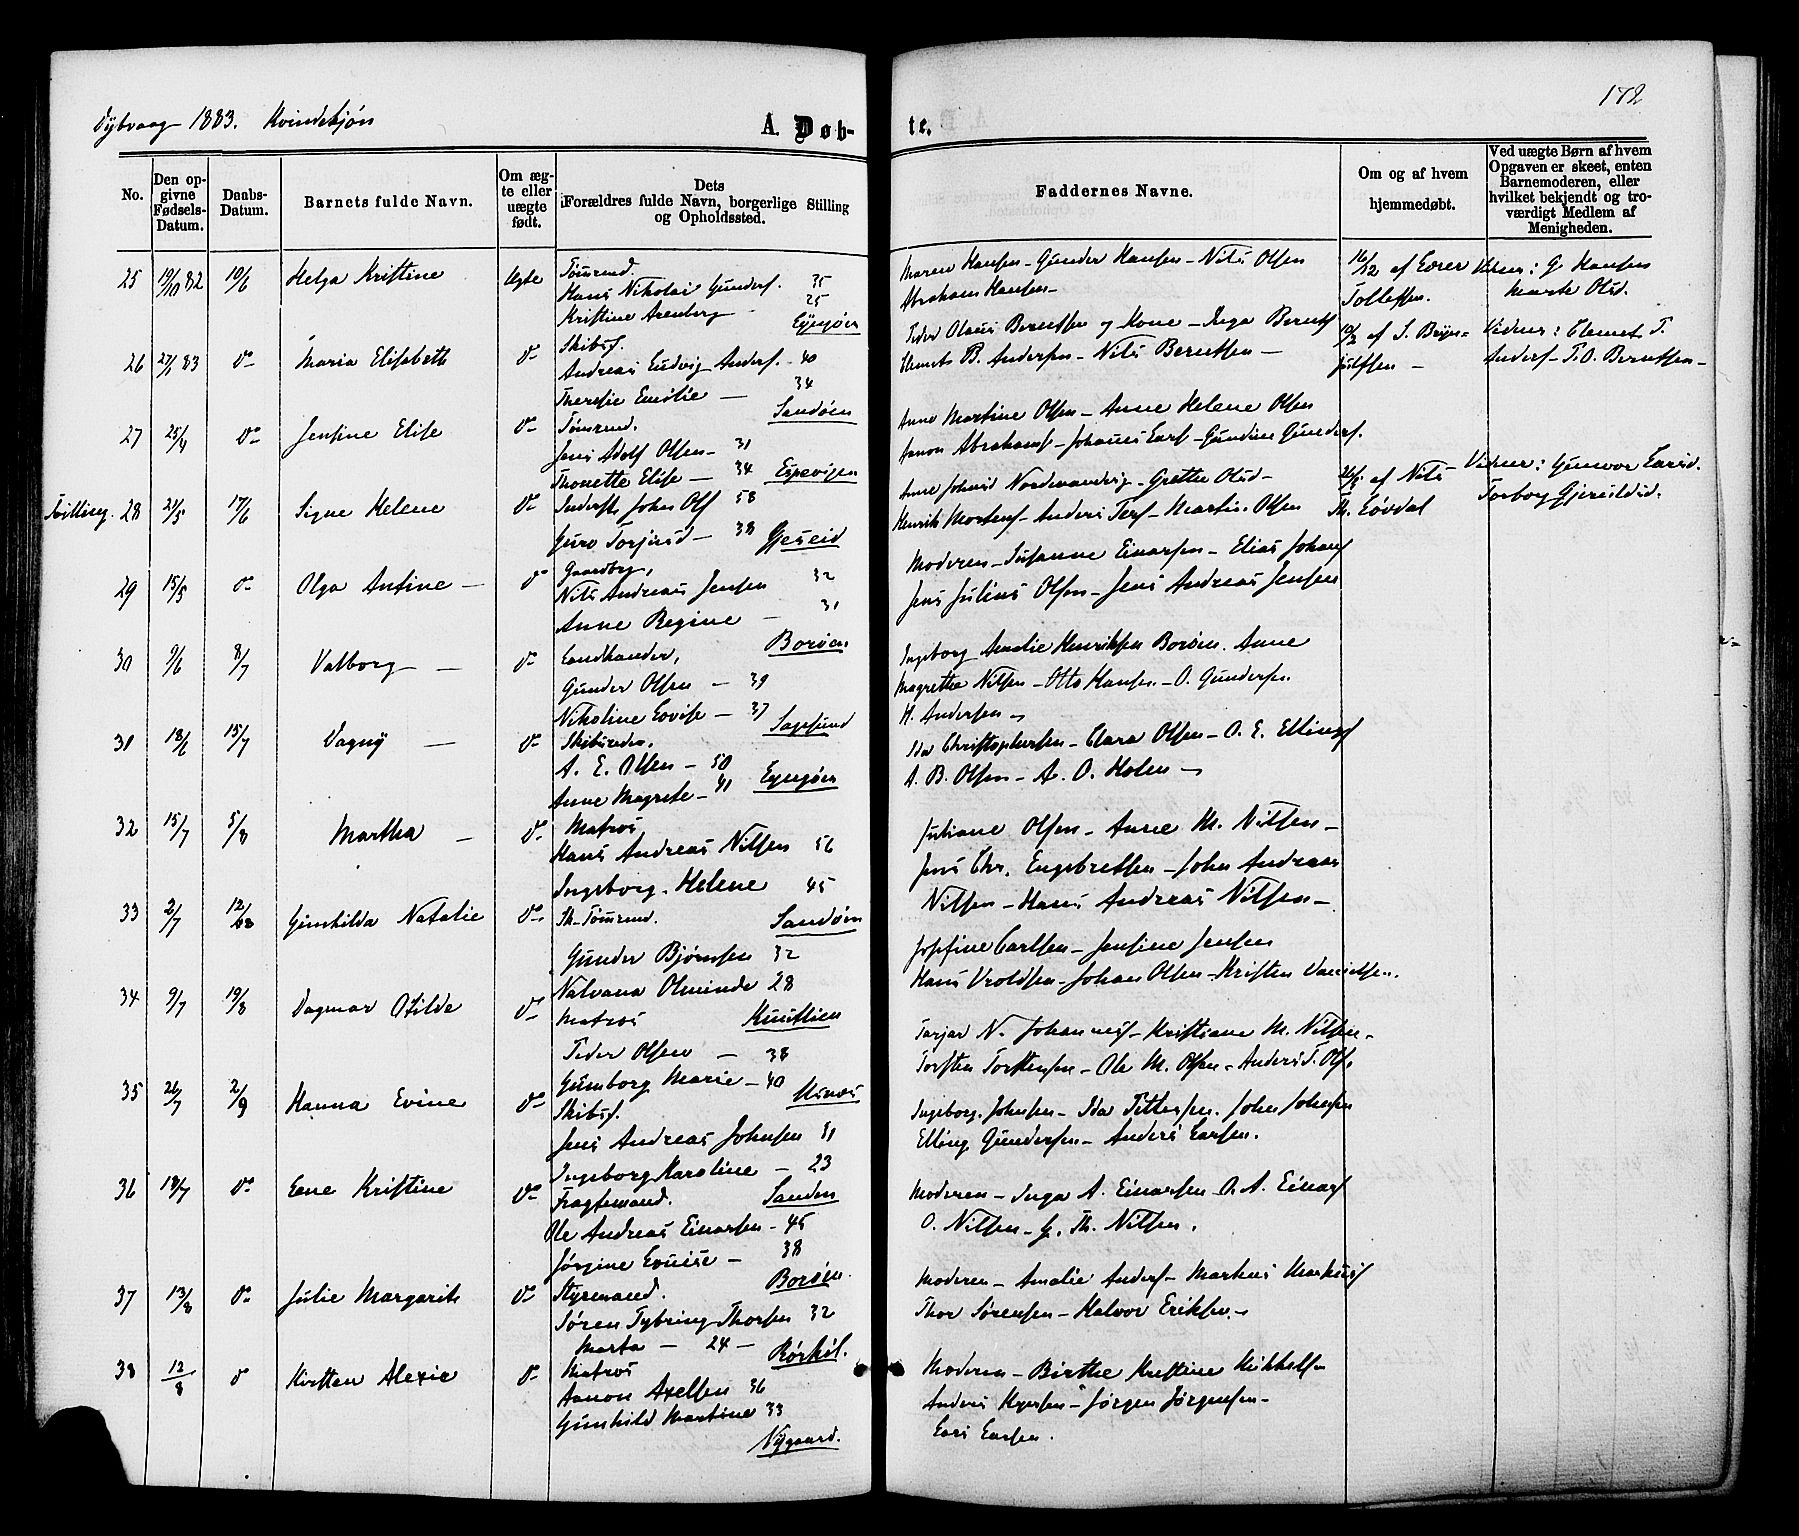 Dybvaag 1883. Kvindekjøn
A. Døb-
te.
172
No.
Den op-
givne
Fødsels-
Datum.
Daabs-
Datum.
Barnets fulde Navn.
Om æg-
te eller
uægte
født.
Dets
Forældres fulde Navn, borgerlige Stilling
og Opholdssted.
Faddernes Navne.
Om og af hvem
hjemmedøbt.
Ved uægte Børn af hvem
Opgaven er skeet, enten
Barnemoderen, eller
hvilket bekjendt og tro-
værdigt Medlem af
Menigheden.
25 19/10 82 10/6 Helga Kristine Ægte Tømrmd.
Hans Nikolai Gunders. 35
Kristine Arenberg 25
Lyngøer
Maren Hansen - Gunder Hansen - Nils Olsen
Abraham Hansen -
16/12 af
Tollefsen.
Vidner: G. Hansen
Marte Olsd.
26 27/1 83 do Maria Elisabeth do Skibsf.
Andreas Ludvig Anders. 40
Theresie Emilie - 34
Sandøen
Peder Olaus Berntsen og Kone - Inga Bernts
Clemets B. Andersen - Nils Berntsen -
12/2 af S. Bryn-
julfsen -
Vidner: Clemet T.
Anders - T. O. Berntsen -
27 25/4 do Jensine Elise do Tømrmd.
Jens Adolf Olsen - 31
Thonette Elise - 34
Espevigen
Anne Martine Olsen - Anne Helene Olsen
Aanon Abrahams - Johannes Lars - Gundine Gunders.
Tvilling. 28 21/5 17/6 Signe Helene do Inderst. John Ols 58
Guro Torjusd - 38
Gjeseid
Anne Johnsd Nordmandvig - Grethe Olsd -
Henrik Mortens - Anders Ters - Martin Olsen
26/5 af Nils
Th. Løvdal
Vidner: Gunvor Larsd.
Torborg Gjeruldsd.
29 15/5 do Olga Antine - do Gaardbr,
Nils Andreas Jensen 32
Anne Regine - 31
Borøen
Moderen - Susanne Einarsen - Elias Johans
Jens Julius Olsen - Jens Andreas Jensen
30 9/6 8/7 Valborg - do Landhandler,
Gunder Olsen - 39
Nikoline Lovise - 37
Sagesund
Ingeborg Amalie Henriksen Borøen. Anne
Magrethe Nilsen - Otto Hansen - O. Gundersen
H. Andersen -
31 18/6 15/7 Dagny - do Skibsreder.
A. E. Olsen - 50
Anne Magrete - 41
Lyngøer
Ida Christophersen - Clara Olsen - O. E. Ellings
A. B. Olsen - A. O. Holen -
32 15/7 5/8 Martha - do Matros
Hans Andreas Nilsen 56
Ingeborg Helene 45
Sandøen
Juliane Olsen - Anne M. Nilsen -
Jens Chr. Engebretsen - John Andreas
Nilsen - Hans Andreas Nilsen -
33 2/7 12/8 Gunhilda Natalie do Th. Tømrmd.
Gunder Bjørnsen 32
Nalvana Olminde 28
Josefine Carlsen - Jensine Jensen
Hans Vroldsen - Johan Olsen - Kristen Danielsen.
34 9/7 19/8 Dagmar Otilde do Matros
Peder Olsen - 38
Gunborg Marie - 40
Tarjer N. Johannes - Kristiane M. Nilsen -
Torsten Torstensen - Ole M. Olsen - Anders T. Ols.
35 26/7 2/9 Hanna Evine do Skibsf.
Jens Andreas Johnsen 31
Ingeborg Karoline - 23
Sanden
Ingeborg Johnsen - Ida Pettersen. John Johnsen
Elling Gundersen - Anders Larsen.
36 18/7 do Lene Kristine do Fragtemand.
Ole Andreas Einarsen - 45
Jørgine Lovise - 38
Borøen
Moderen - Inga A. Einarsen - O. A. Einars
O. Nilsen - G. Th. Nilsen.
37 13/8 do Julie Margarits do Styrmand.
Søren Tybring Thorsen 32
Marta - 24 -
Rørkil.
Moderen - Amalie Anders - Markus Markus
Thor Sørensen - Halvor Eriksen -
38 12/8 do Kirsten Alexie do Matros
Aanon Axelsen 36
Gunhild Martine 33
Nygaard.
Moderen - Birthe Kristine Mikkels -
Anders - Jørgen Jørgensen -
Lars Larsen.